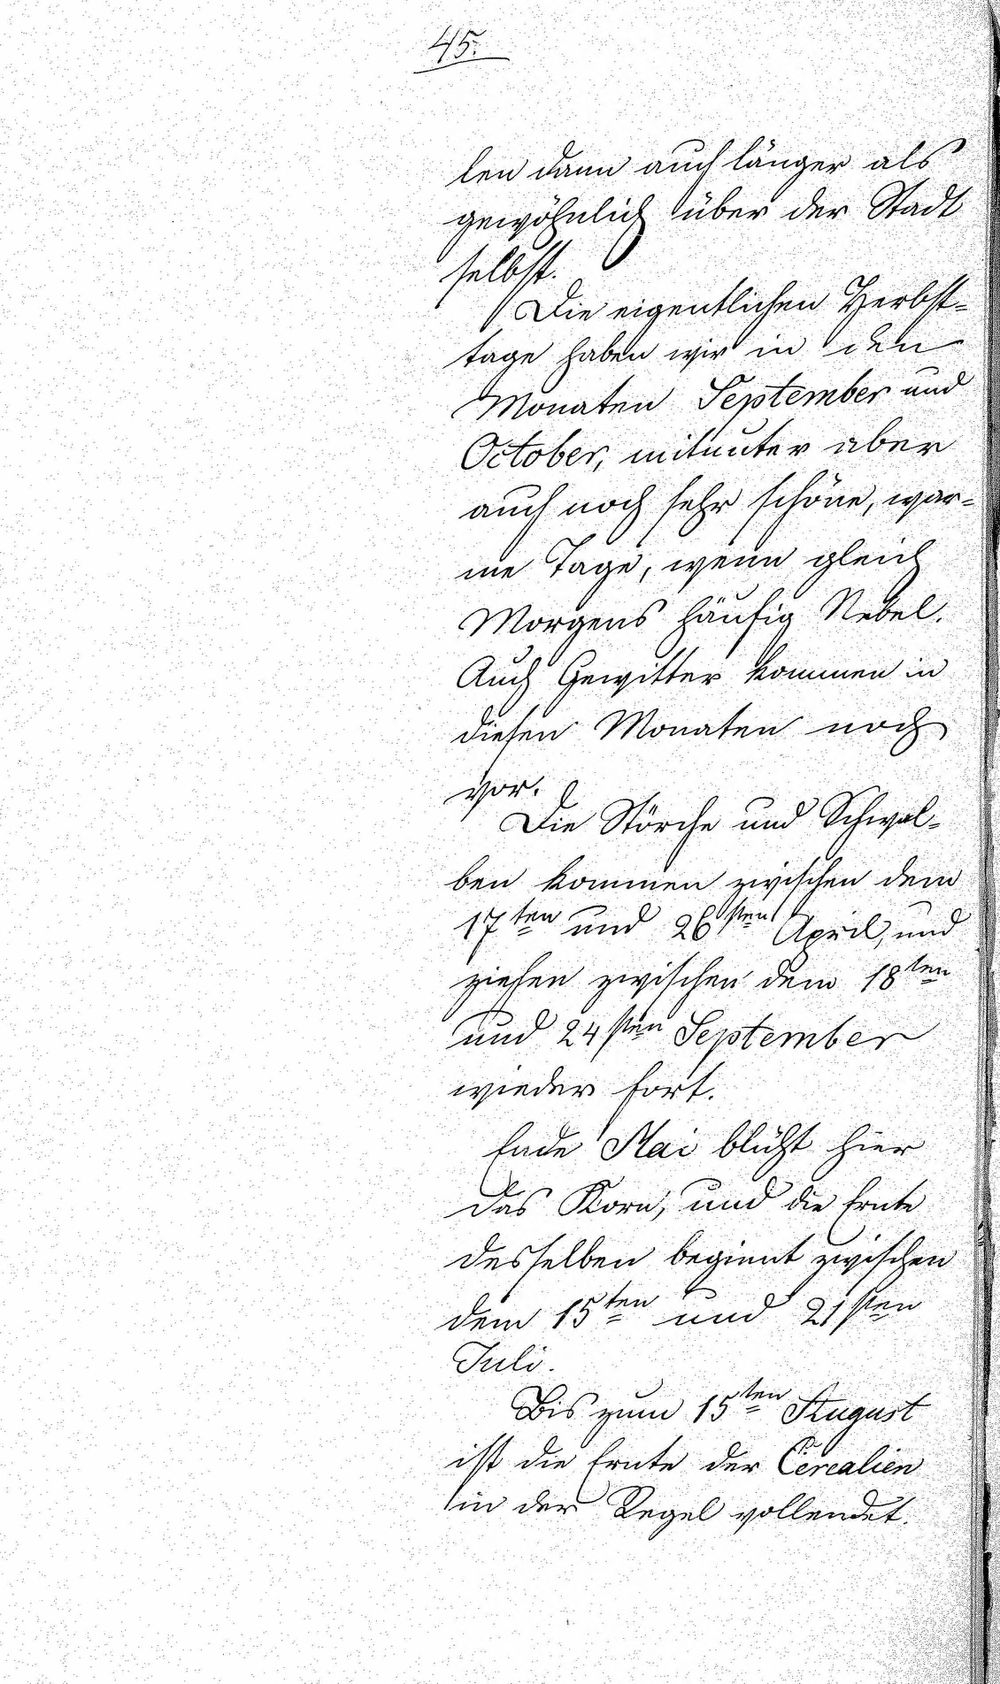 45.
len dann auch länger als
gewöhnlich über der Stadt
selbst.
Die eigentlichen Herbst-
tage haben wir in den
Monaten September und
October, mitunter aber
auch noch sehr schöne, war-
me Tage, wenn gleich
Morgens häufig Nebel.
Auch Gewitter kommen in
diesen Monaten noch
vor.
Die Störche und Schwal-
ben kommen zwischen dem
17ten und 26sten April, und
ziehen zwischen dem 18ten
und 24sten September
wieder fort.
Ende Mai blüht hier
das Korn, und die Ernte
desselben beginnt zwischen
dem 15ten und 21sten
Juli.
Bis zum 15ten August
ist die Ernte der Cerealien
in der Regel vollendet.